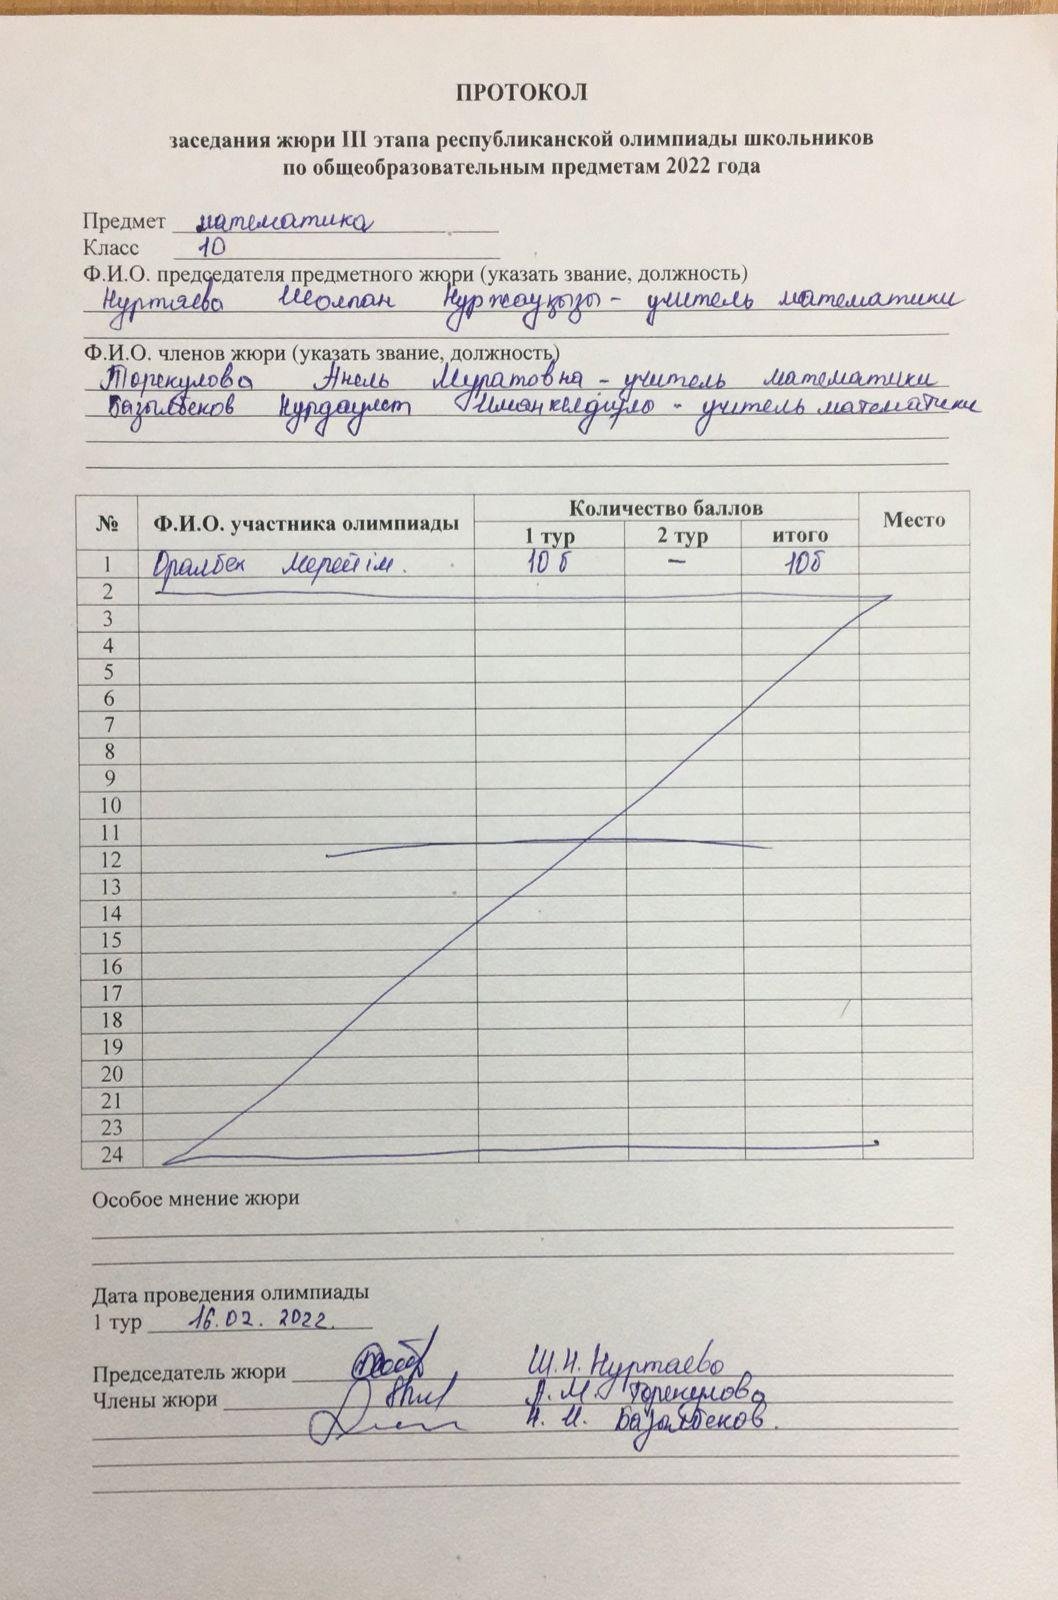 ПРОТОКОЛ
заседания жюри III этапа республиканской олимпиады школьников
по общеобразовательным предметам 2022 года
Предмет математика
Класс 10
Ф.И.О. председателя предметного жюри (указать звание, должность)
Нуртаева Шолпан Нуржауқызы - учитель математики
Ф.И.О. членов жюри (указать звание, должность)
Торекулова Анель Муратовна - учитель математики
Базылбеков Нурдаулет - учитель математики
№ Ф.И.О. участника олимпиады Количество баллов Место
1 тур 2 тур итого
1 Оралбек Мерейім. 10 б – 10б
2
3
4
5
6
7
8
9
10
11
12
13
14
15
16
17
18
19
20
21
23
24
Особое мнение жюри
Дата проведения олимпиады
1 тур 16.02.2022.
Председатель жюри Ш.Н. Нуртаева
Члены жюри А.М. Торекулова
Н.И. Базылбеков.